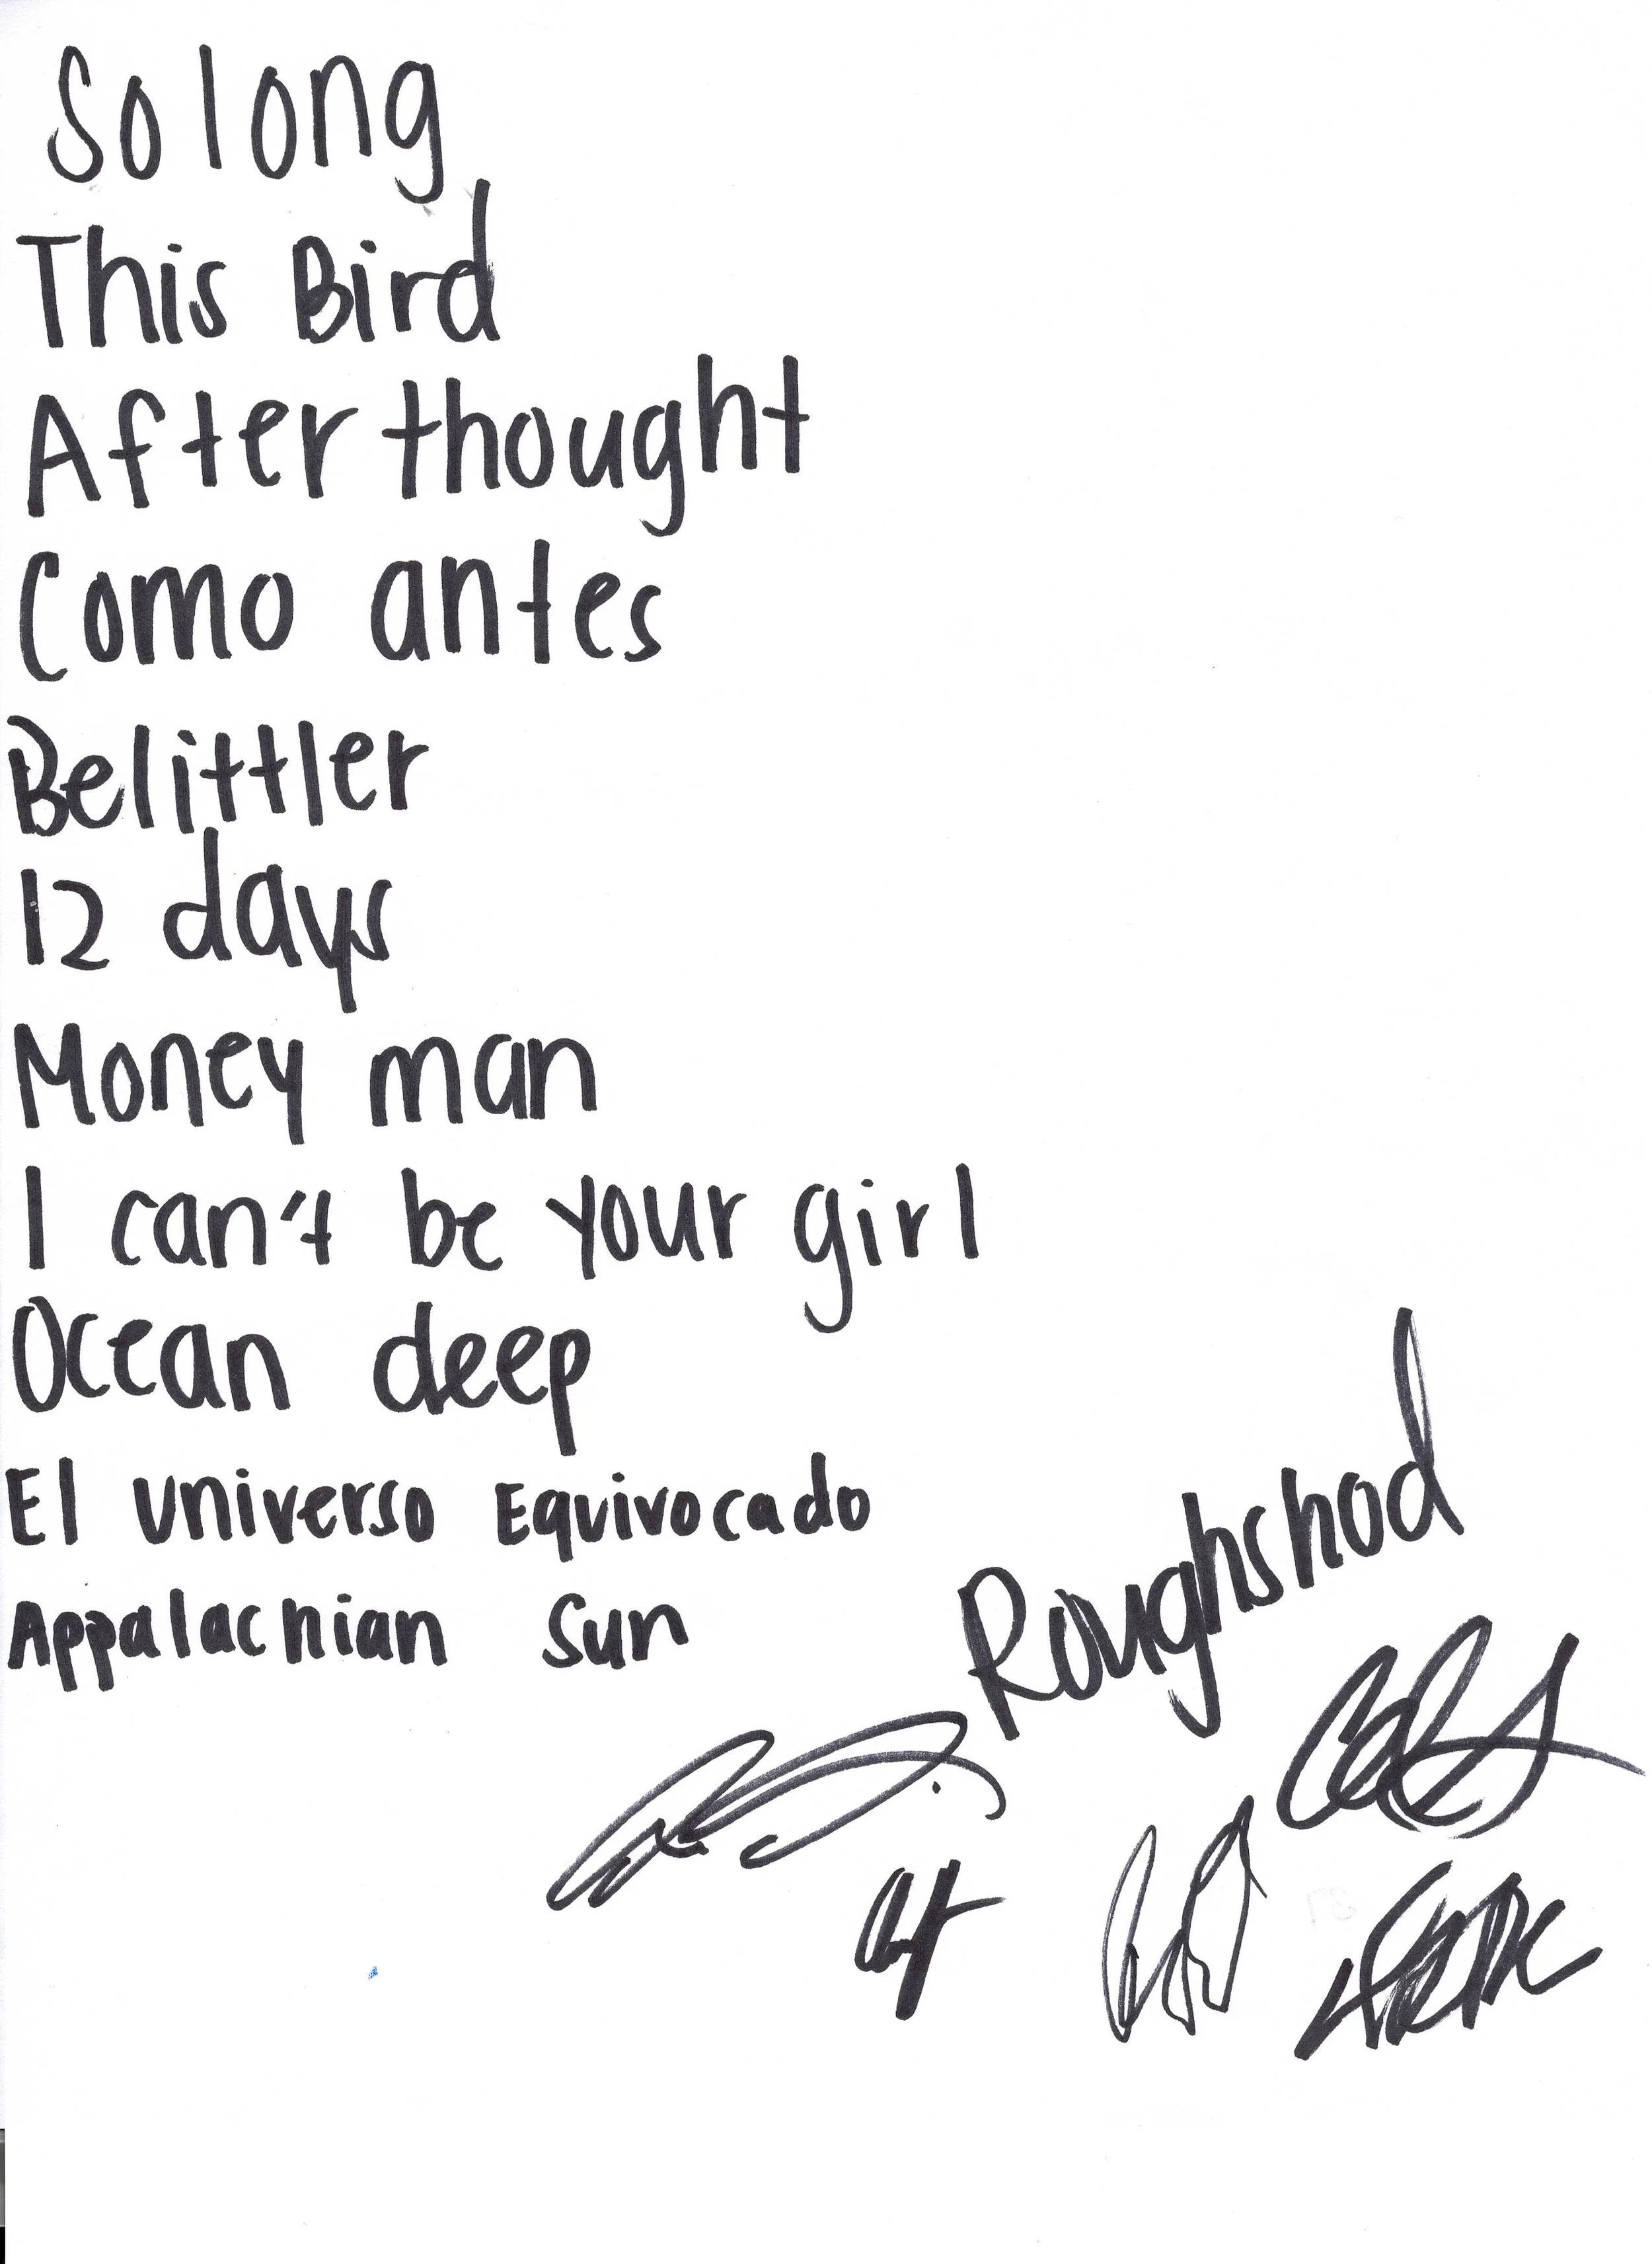 So long
This Bird
Afterthought
Como antes
Belittler
12 days
Money man
I can't be your girl
Ocean deep
El Universo Equivocado
Appalachian Sun
Roughshod